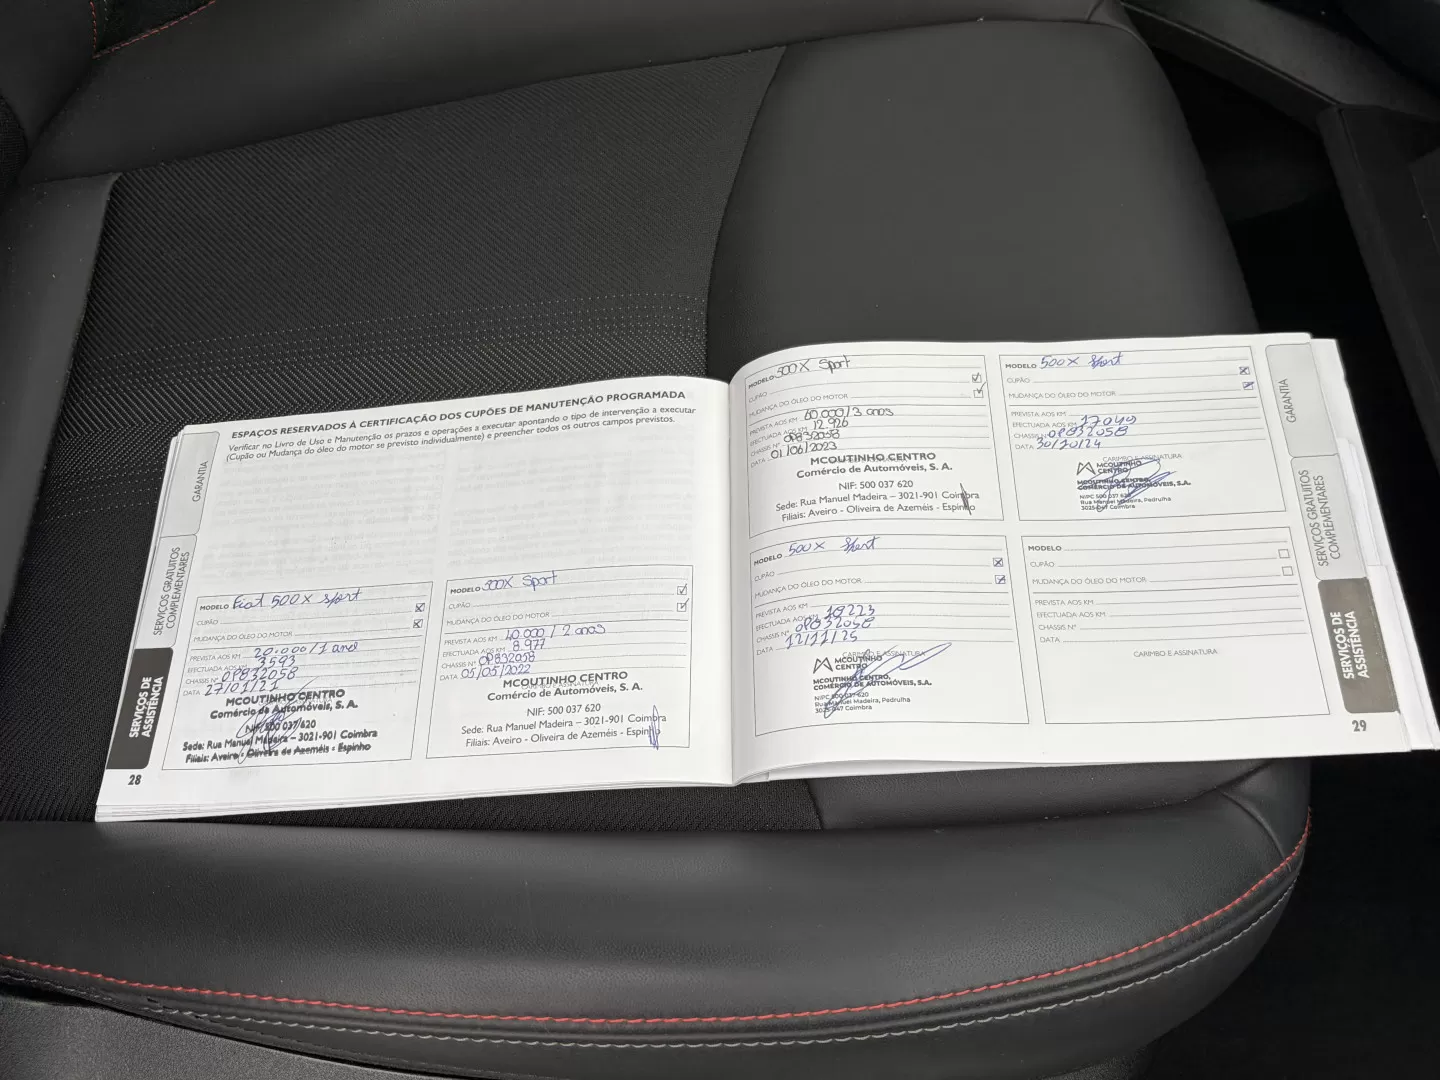 ESPAÇOS RESERVADOS À CERTIFICAÇÃO DOS CUPÕES DE MANUTENÇÃO PROGRAMADA
Verificar no Livro de Uso e Manutenção os prazos e operações a executar apontando o tipo de intervenção a executar
(Cupão ou Mudança do óleo do motor se previsto individualmente) e preencher todos os outros campos previstos.
GARANTIA
SERVIÇOS GRATUITOS
COMPLEMENTARES
SERVIÇOS DE
ASSISTÊNCIA
MODELO Fiat 500X sport
CUPÃO
MUDANÇA DO ÓLEO DO MOTOR
PREVISTA AOS KM 20.000/1 ano
EFECTUADA AOS KM 3593
CHASSIS Nº 0P832058
DATA 27/01/21
MCOUTINHO CENTRO
Comércio de Automóveis, S. A.
NIF: 500 037 620
Sede: Rua Manuel Madeira – 3021-901 Coimbra
Filiais: Aveiro - Oliveira de Azeméis - Espinho
28
MODELO 500X Sport
CUPÃO
MUDANÇA DO ÓLEO DO MOTOR
PREVISTA AOS KM 40.000 / 2 anos
EFECTUADA AOS KM 8.977
CHASSIS Nº 0P832058
DATA 05/05/2022
MCOUTINHO CENTRO
Comércio de Automóveis, S. A.
NIF: 500 037 620
Sede: Rua Manuel Madeira – 3021-901 Coimbra
Filiais: Aveiro - Oliveira de Azeméis - Espinho
MODELO 500X Sport
CUPÃO
MUDANÇA DO ÓLEO DO MOTOR
PREVISTA AOS KM 60.000/3 anos
EFECTUADA AOS KM 12.926
CHASSIS Nº 0P832058
DATA 01/06/2023
MCOUTINHO CENTRO
Comércio de Automóveis, S. A.
NIF: 500 037 620
Sede: Rua Manuel Madeira – 3021-901 Coimbra
Filiais: Aveiro - Oliveira de Azeméis - Espinho
MODELO 500X Sport
CUPÃO
MUDANÇA DO ÓLEO DO MOTOR
PREVISTA AOS KM
EFECTUADA AOS KM 17049
CHASSIS Nº 0P832058
DATA 30/10/24
CARIMBO E ASSINATURA
MCOUTINHO
CENTRO
MCOUTINHO CENTRO,
COMÉRCIO DE AUTOMÓVEIS, S.A.
NIPC 500 037 620
Rua Manuel Madeira, Pedrulha
3025-047 Coimbra
MODELO 500X Sport
CUPÃO
MUDANÇA DO ÓLEO DO MOTOR
PREVISTA AOS KM
EFECTUADA AOS KM 19223
CHASSIS Nº 0P832058
DATA 12/11/25
CARIMBO E ASSINATURA
MCOUTINHO
CENTRO
MCOUTINHO CENTRO,
COMÉRCIO DE AUTOMÓVEIS, S.A.
NIPC 500 037 620
Rua Manuel Madeira, Pedrulha
3025-047 Coimbra
MODELO
CUPÃO
MUDANÇA DO ÓLEO DO MOTOR
PREVISTA AOS KM
EFECTUADA AOS KM
CHASSIS Nº
DATA
CARIMBO E ASSINATURA
GARANTIA
SERVIÇOS GRATUITOS
COMPLEMENTARES
SERVIÇOS DE
ASSISTÊNCIA
29